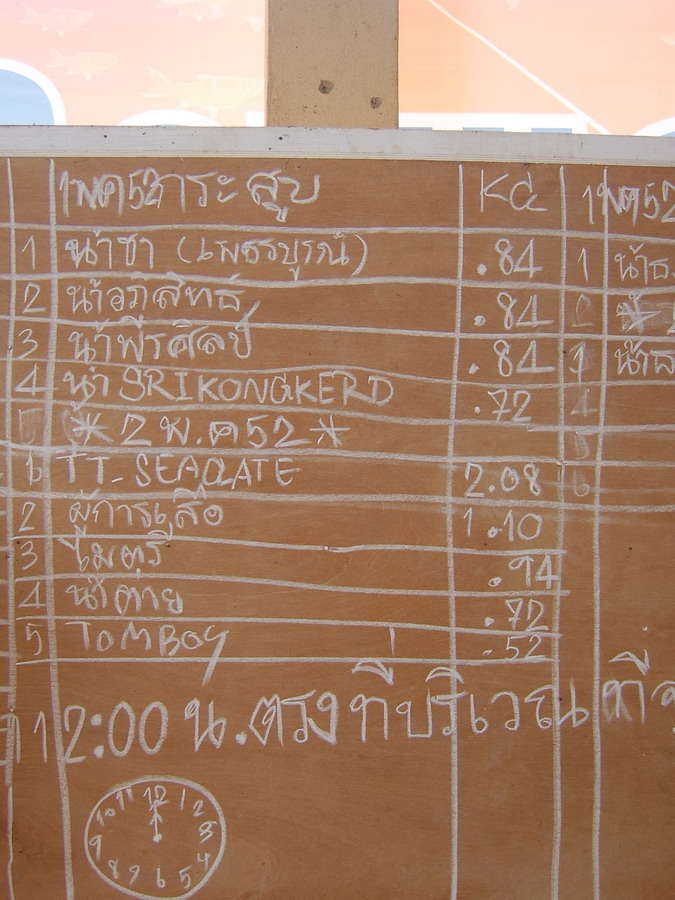 1พค52 กระสูบ KG 1พค52
1 น้าชา (เพชรบูรณ์) .84 1 น้าธ
2 น้าอภิสิทธ์ .84 2
3 น้าพีรศิลป์ .84 1 น้าธ
4 น้า SRIKONGKERD .72 4
* 2 พ.ค52 *
1 TT. SEAGATE 2.08
2 ผู้การเสือ 1.10
3 ไมตรี .94
4 น้าต่าย .72
5 TOMBOY .52
12:00 น.ตรงที่บริเวณ
11 12 1
10 2
9 3
8 4
7 6 5